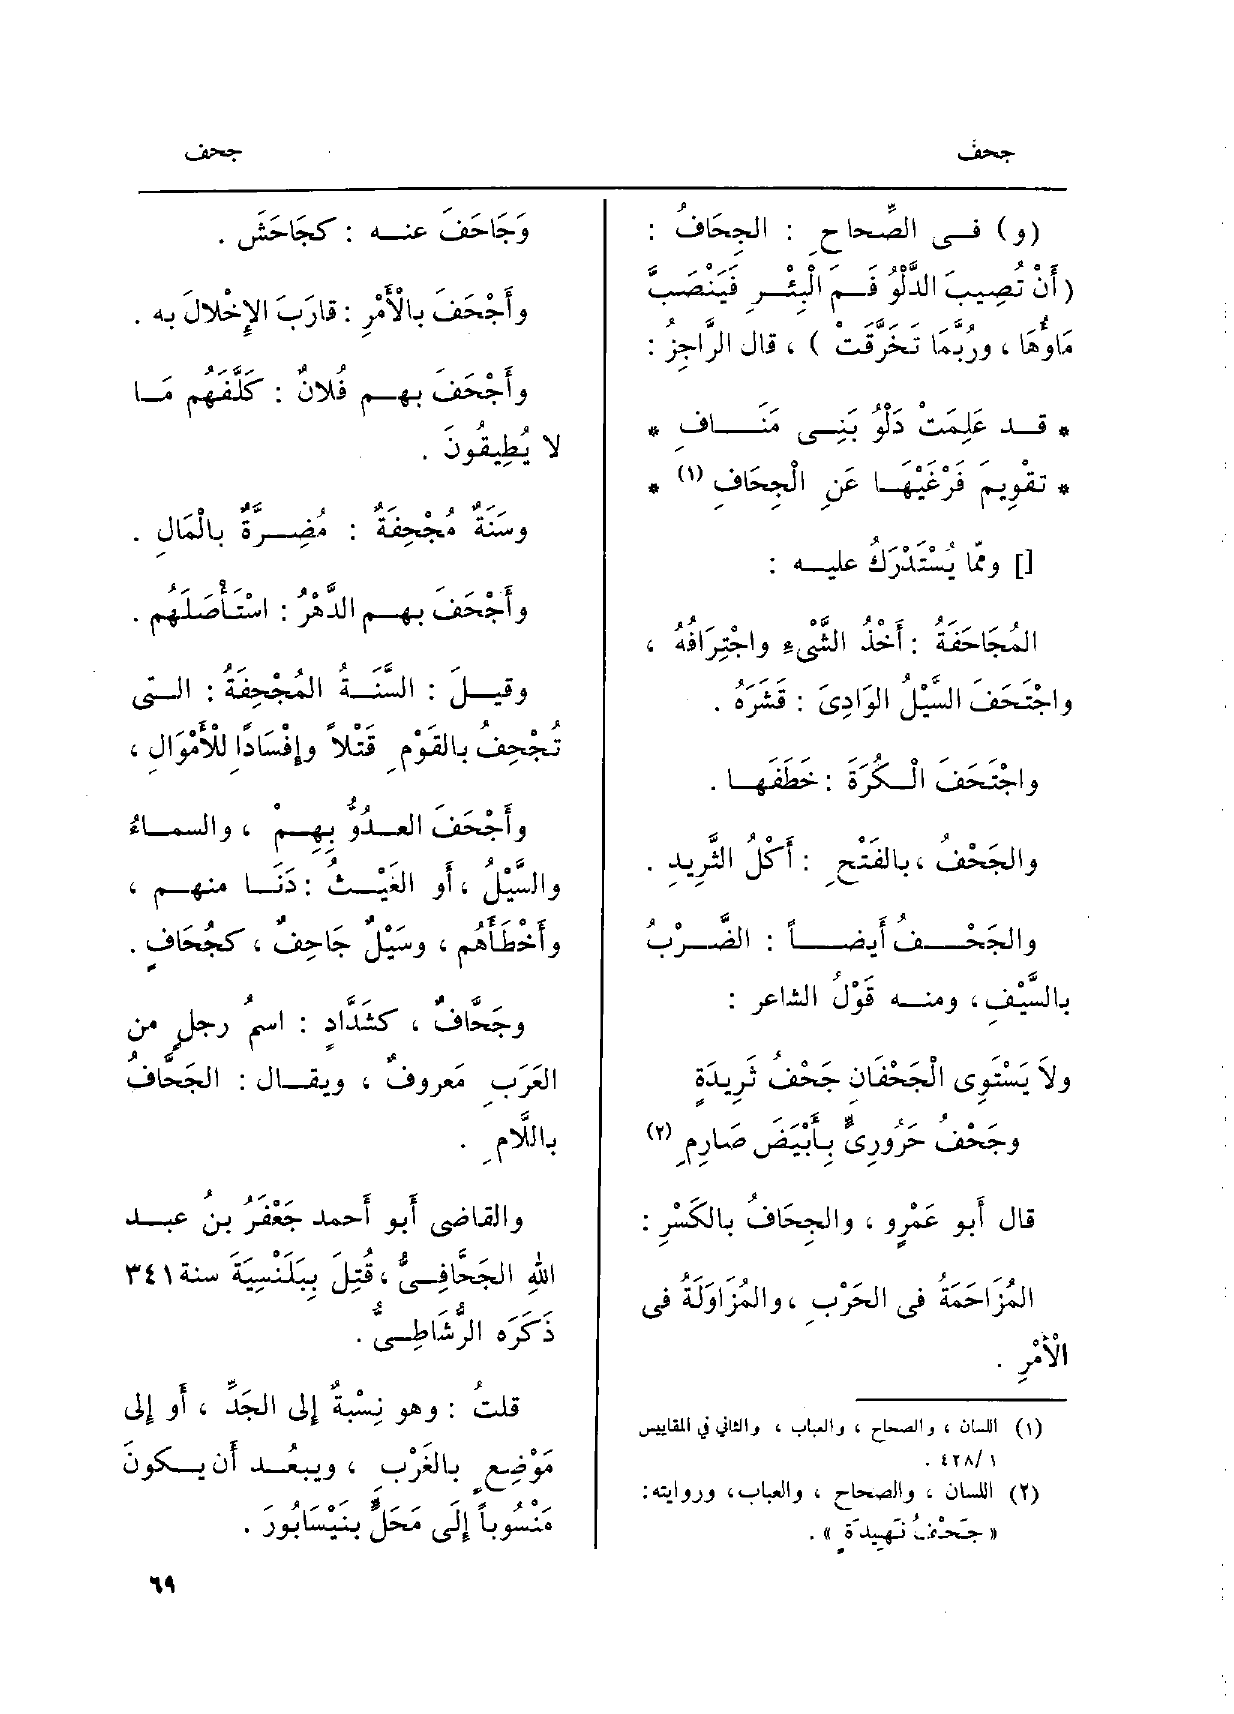 جحف
جحف
(و) فــى الصِّحاحِ : الجِحَافُ :
(أَنْ تُصِيبَ الدَّلْوُ فَــمَ الْبِئْــرِ فَيَنْصَبَّ
مَاؤُهَا ، ورُبَّمَا تَخَرَّقَتْ ) ، قال الرَّاجِزُ :
* قــد عَلِمَتْ دَلْوُ بَنِــى مَنَــــافِ *
* تقْوِيمَ فَرْغَيْهَــا عَنِ الْجِحَافِ (١) *
[] وممّا يُسْتَدْرَكُ عليــه :
المُجَاحَفَةُ : أَخْذُ الشَّىْءِ واجْتِرَافُهُ ،
واجْتَحَفَ السَّيْلُ الوَادِىَ : قَشَرَهُ .
واجْتَحَفَ الْــكُرَةَ : خَطَفَهــا .
والجَحْفُ ، بالفَتْحِ : أَكْلُ الثَّرِيدِ .
والجَحْــــفُ أَيضــــاً : الضَّــرْبُ
بالسَّيْفِ ، ومنــه قَوْلُ الشاعر :
ولاَ يَسْتَوِى الْجَحْفَانِ جَحْفُ ثَرِيدَةٍ
وجَحْفُ حَرُورِىٍّ بِأَبْيَضَ صَارِمِ (٢)
قال أَبو عَمْرٍو ، والجِحَافُ بالكَسْرِ :
المُزَاحَمَةُ فى الحَرْبِ ، والمُزَاوَلَةُ فى
الْأَمْرِ .
(١) اللسان ، والصحاح ، والعباب ، والثاني في المقاييس
٤٢٨/١ .
(٢) اللسان ، والصحاح ، والعباب، وروايته:
« جَحْفُ نَهِيدَةٍ » .
وَجَاحَفَ عنــه : كجَاحَشَ .
وأَجْحَفَ بالْأَمْرِ : قارَبَ الإِخْلالَ به .
وأَجْحَفَ بهــم فُلانٌ : كَلَّفَهُم مَــا
لا يُطِيقُونَ .
وسَنَةٌ مُجْحِفَةٌ : مُضِــرَّةٌ بالْمَالِ .
وأَجْحَفَ بهــم الدَّهْرُ : اسْتَأْصَلَهُم .
وقيــلَ : السَّنَــةُ المُجْحِفَةُ : الــتى
تُجْحِفُ بالقَوْمِ قَتْلاً وإِفْسَادًا للْأَمْوَالِ ،
وأَجْحَفَ العــدُوُّ بِهِــمْ ، والسمــاءُ
والسَّيْلُ ، أَو الغَيْــثُ : دَنَــا منهــم ،
وأَخْطَأَهُم ، وسَيْلٌ جَاحِفٌ ، كجُحَافٍ .
وجَحَّافٌ ، كشَدَّادٍ : اسمُ رجلٍ من
العَرَبِ مَعروفٌ ، ويقــال : الجَحَّافُ
باللَّامِ .
والقاضى أَبو أَحمد جَعْفَرُ بنُ عبــد
اللهِ الجَحَّافِــىُّ ، قُتِلَ بِبَلَنْسِيَةَ سنة ٣٤١
ذَكَرَه الرُّشَاطِــىُّ .
قلتُ : وهو نِسْبَةٌ إِلى الجَدِّ ، أَو إِلى
مَوْضِعٍ بالغَرْبِ ، ويبعُــد أَن يــكونَ
مَنْسُوباً إِلَى مَحَلٍّ بنَيْسَابُورَ .
٦٩